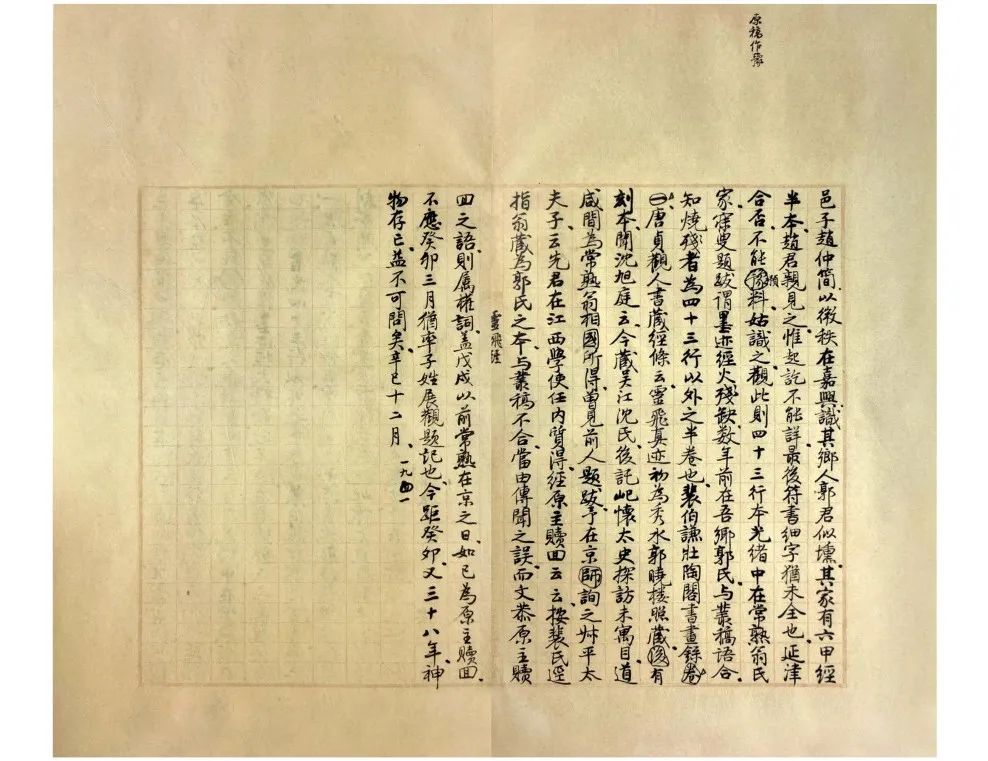 原稿作豫
邑子趙仲簡以微秩在嘉興識其鄉人郭君似壎其家有六甲經
半本趙君親見之惟起訖不能詳最後符書細字猶未全也延津
合否不能豫料姑識之觀此則四十三行本光緒中在常熟翁氏
預
家寐叟題跋謂墨迹經火殘缺数年前在吾鄉郭氏与叢稿語合
知燒殘者為四十三行以外之半卷也裴伯謙壯陶閣書畫錄卷
一唐貞觀人書藏經條云靈飛真迹初為秀水郭曉樓照藏後有
刻本聞沈旭庭云今藏吴江沈氏後託屺懷太史探訪未寓目道
咸間為常熟翁相國所得曾見前人題跋予在京師詢之
平太
夫子云先君在江西學使任内質得經原主贖回云云按裴氏逕
指翁藏為郭氏之本与叢稿不合當由傳聞之誤而文恭原主贖
靈飛經
回之語則属權詞蓋戊戌以前常熟在京之日如已為原主贖回
不應癸卯三月猶率子姓展觀題記也今距癸卯又三十八年神
物存亡益不可問矣辛巳十二月
一九四一